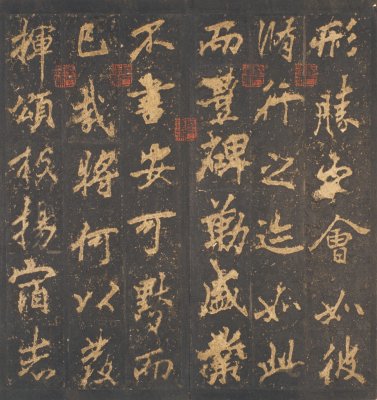 形勝會如彼
脩行之迹如此
而豐碑勒盛業
不書安可默而
已哉將何以發
揮頌揚宿志